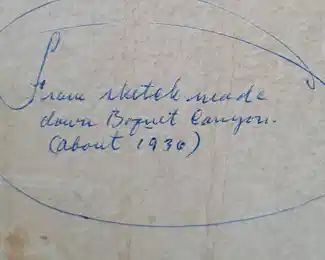 From sketch made
down Boquet Canyon.
(about 1936)